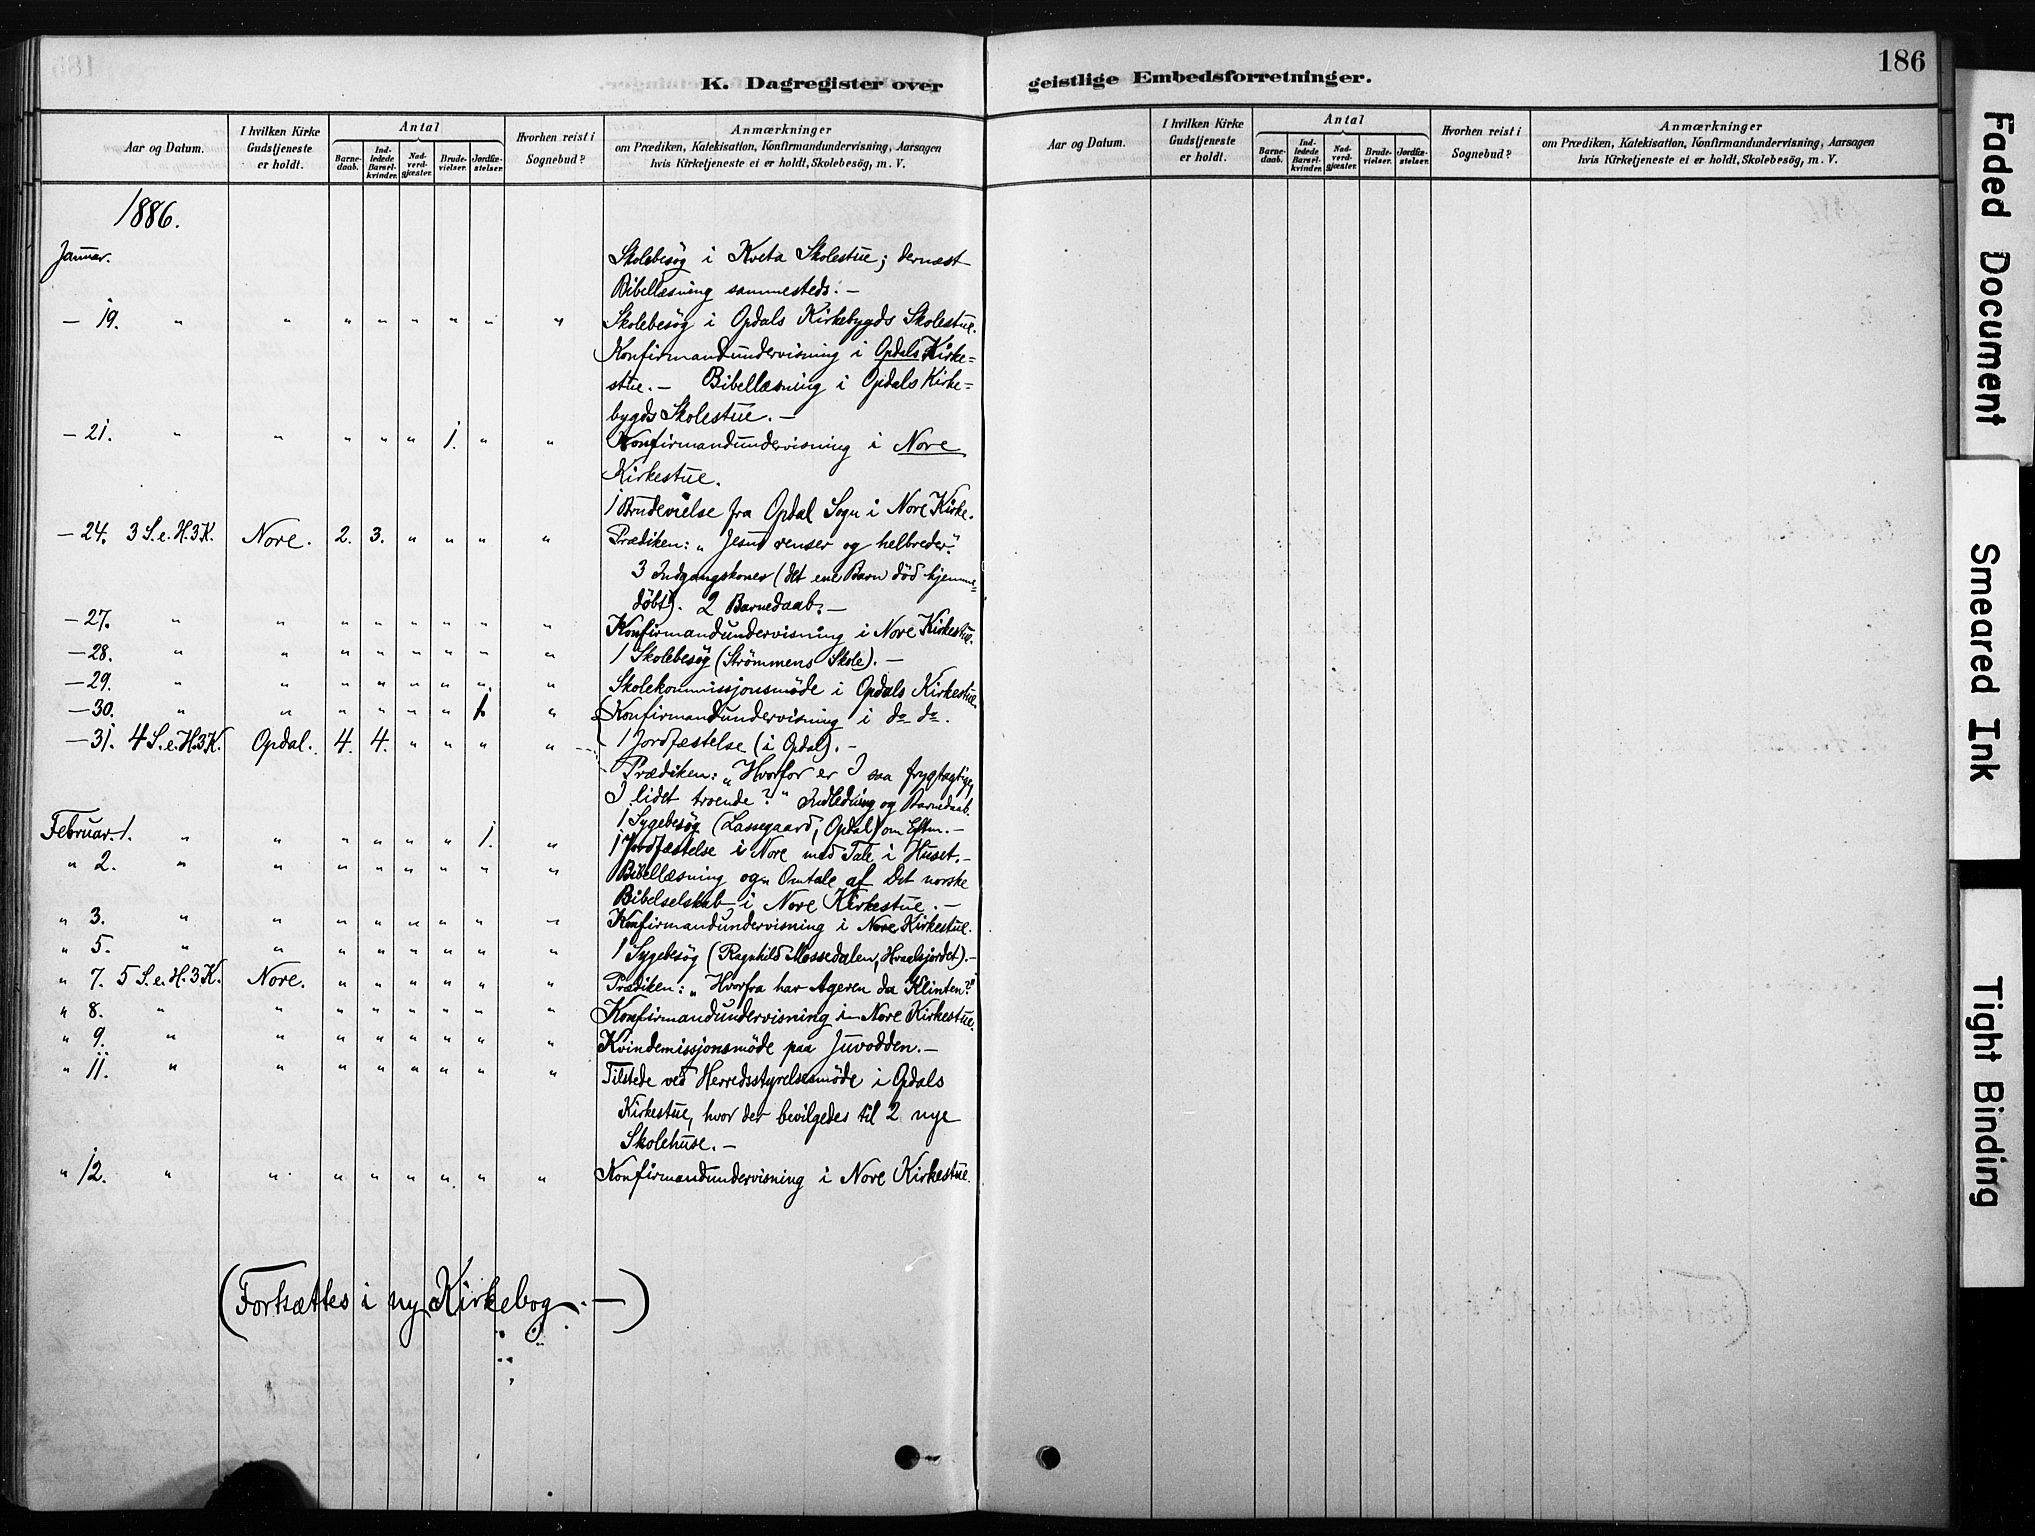 186
K. Dagregister over geistlige Embedsforretninger.
Aar og Datum. I hvilken Kirke Gudstjeneste er holdt. Antal Barnedaab. Indledede Barselkvinder. Nadverdgjæster. Brudevielser. Jordfæstelser. Hvorhen reist i Sognebud? Anmærkninger om Prædiken, Katekisation, Konfirmandundervisning, Aarsagen hvis Kirketjeneste ei er holdt, Skolebesög, m. V.
Aar og Datum. I hvilken Kirke Gudstjeneste er holdt. Antal Barnedaab. Indledede Barselkvinder. Nadverdgjæster. Brudevielser. Jordfæstelser. Hvorhen reist i Sognebud? Anmærkninger om Prædiken, Katekisation, Konfirmandundervisning, Aarsagen hvis Kirketjeneste ei er holdt, Skolebesög, m. V.
1886.
Januar. Skolebesög i Kveta Skolestue; dernæst
Bibellæsning sammesteds. —
— 19. " " " " " " " " Skolebesög i Opdals Kirkebygds Skolestue.
Konfirmandundervisning i Opdals Kirke=
stue. — Bibellæsning i Opdals Kirke=
bygds Skolestue. —
— 21. " " " " " 1. " " Konfirmandundervisning i Nore
Kirkestue.
1 Brudevielse fra Opdal Sogn i Nore Kirke.
— 24. 3 S. e. H. 3 K. Nore. 2. 3. " " " " Prædiken: "Jesus renser og helbreder."
3 Indgangskoner (det ene Barn död hjemme=
döbt). 2 Barnedaab. —
— 27. " " " " " " " " Konfirmandundervisning i Nore Kirkestue.
— 28. " " " " " " " " 1 Skolebesög (Strömmens Skole). —
— 29. " " " " " " " " Skolekommissjonsmöde i Opdals Kirkestue.
— 30. " " " " " " 1. " Konfirmandundervisning i do do.
— 31. 4 S. e. H. 3 K. Opdal. 4. 4. " " " " 1 Jordfæstelse (i Opdal). —
Prædiken: "Hvorfor er I saa frygtagtige,
I lidet troende?" Indledning og Barnedaab.
1 Sygebesög (Lassegaard, Opdal) om Eftm. —
Februar. 1. " " " " " " 1. " 1 Jordfæstelse i Nore med Tale i Huset. —
" 2. " " " " " " " " Bibellæsning og Omtale af Det norske
Bibelselskab i Nore Kirkestue. —
" 3. " " " " " " " " Konfirmandundervisning i Nore Kirkestue.
" 5. " " " " " " " " 1 Sygebesög (Ragnhild Mossedalen, Hvaalsjordet). —
" 7. 5 S. e. H. 3 K. Nore. " " " " " " Prædiken: "Hvorfra har Ageren da Klinten?"
" 8. " " " " " " " " Konfirmandundervisning i Nore Kirkestue.
" 9. " " " " " " " " Kvindemissjonsmöde paa Juvodden. —
" 11. " " " " " " " " Tilstede ved Herredsstyrelsesmöde i Opdals
Kirkestue, hvor der bevilgedes til 2 nye
Skolehuse. —
" 12. " " " " " " " " Konfirmandundervisning i Nore Kirkestue.
(Fortsættes i ny Kirkebog. —)
Faded Document
Smeared Ink
Tight Binding